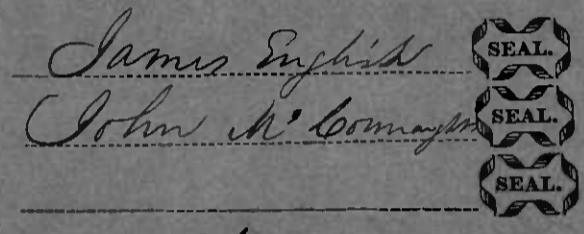 James English SEAL.
John Mc Connaughy SEAL.
SEAL.